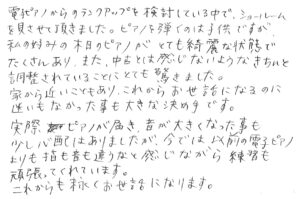 電子ピアノからのランクアップを検討している中で、ショールーム
を見させて頂きました。ピアノを弾くのは子供ですが、
私の好みの木目のピアノがとても綺麗な状態で
たくさんあり、また、中古とは感じないようなきちんと
調整されていることにとても驚きました。
家から近いこともあり、これからお世話になるのに
迷いもなかった事も大きな決め手です。
実際ピアノが届き、音が大きくなった事も
少し心配はありましたが、今では以前の電子ピアノ
よりも指も音も違うなと感じながら練習も
頑張ってくれています。
これからも永くお世話になります。